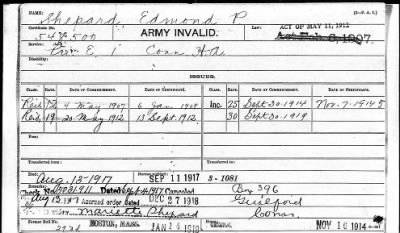 NAME: Shepard, Edmond P. (3-P.A.C.)
Certificate No. ARMY INVALID. LAW: ACT OF MAY 11, 1912
548500 Act Feb. 6, 1907.
Priv E, 1 Conn H.A.
ISSUES.
CLASS. RATE. DATE OF COMMENCEMENT. DATE OF CERTIFICATE. CLASS. RATE. DATE OF COMMENCEMENT. DATE OF CERTIFICATE.
Reis. 12 4 May 1907 6 Jan 1908 Inc. 25 Sept 30-1914 Nov. 7-1914
Reis. 19 20 May 1912 13 Sept. 1912 30 Sept 30-1919
Transferred to Transferred from
Died Aug. 13-1917 SEP 11 1917 3-1081 Box 396
Check No. Dated Canceled Guilford
Aug 13, 1917 Accrued order dated DEC 27 1918 Conn.
Marietta Shepard
Former Roll No. BOSTON, MASS. JAN 1910 GENERAL NOV 10 1914